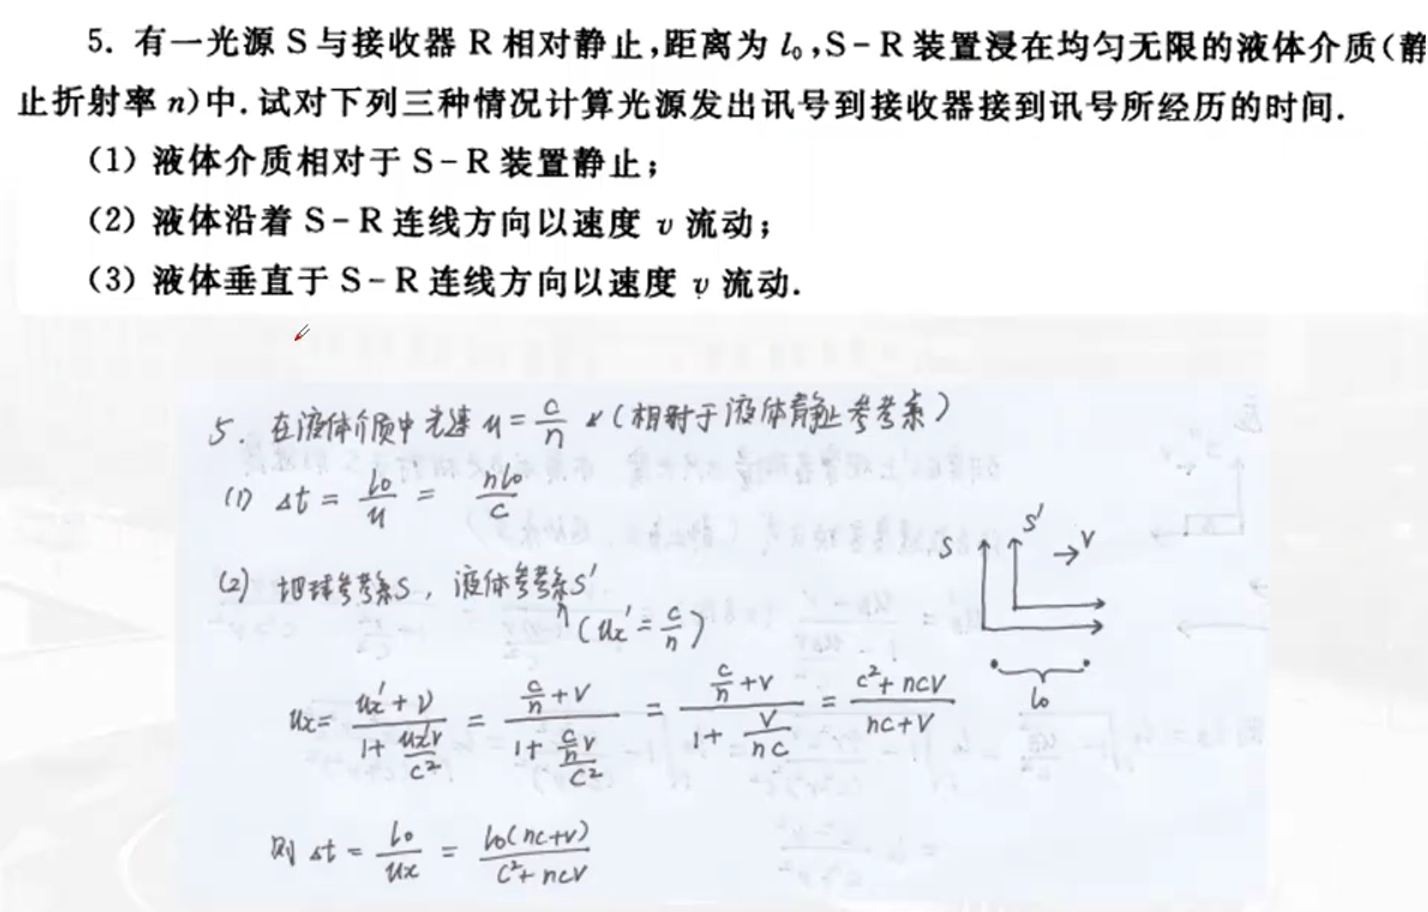 5. 有一光源 S 与接收器 R 相对静止,距离为 l₀,S-R 装置浸在均匀无限的液体介质(静
止折射率 n)中.试对下列三种情况计算光源发出讯号到接收器接到讯号所经历的时间.
(1) 液体介质相对于 S-R 装置静止;
(2) 液体沿着 S-R 连线方向以速度 v 流动;
(3) 液体垂直于 S-R 连线方向以速度 v 流动.
5. 在液体介质中光速 u = c/n (相对于液体静止参考系)
(1) Δt = l₀/u = nl₀/c
(2) 地球参考系S, 液体参考系S'
(ux' = c/n)
S S' → v
l₀
ux = (ux' + v)/(1 + ux'v/c²) = (c/n + v)/(1 + (c/n)v/c²) = (c/n + v)/(1 + v/(nc)) = (c² + ncv)/(nc + v)
则 Δt = l₀/ux = l₀(nc+v)/(c² + ncv)